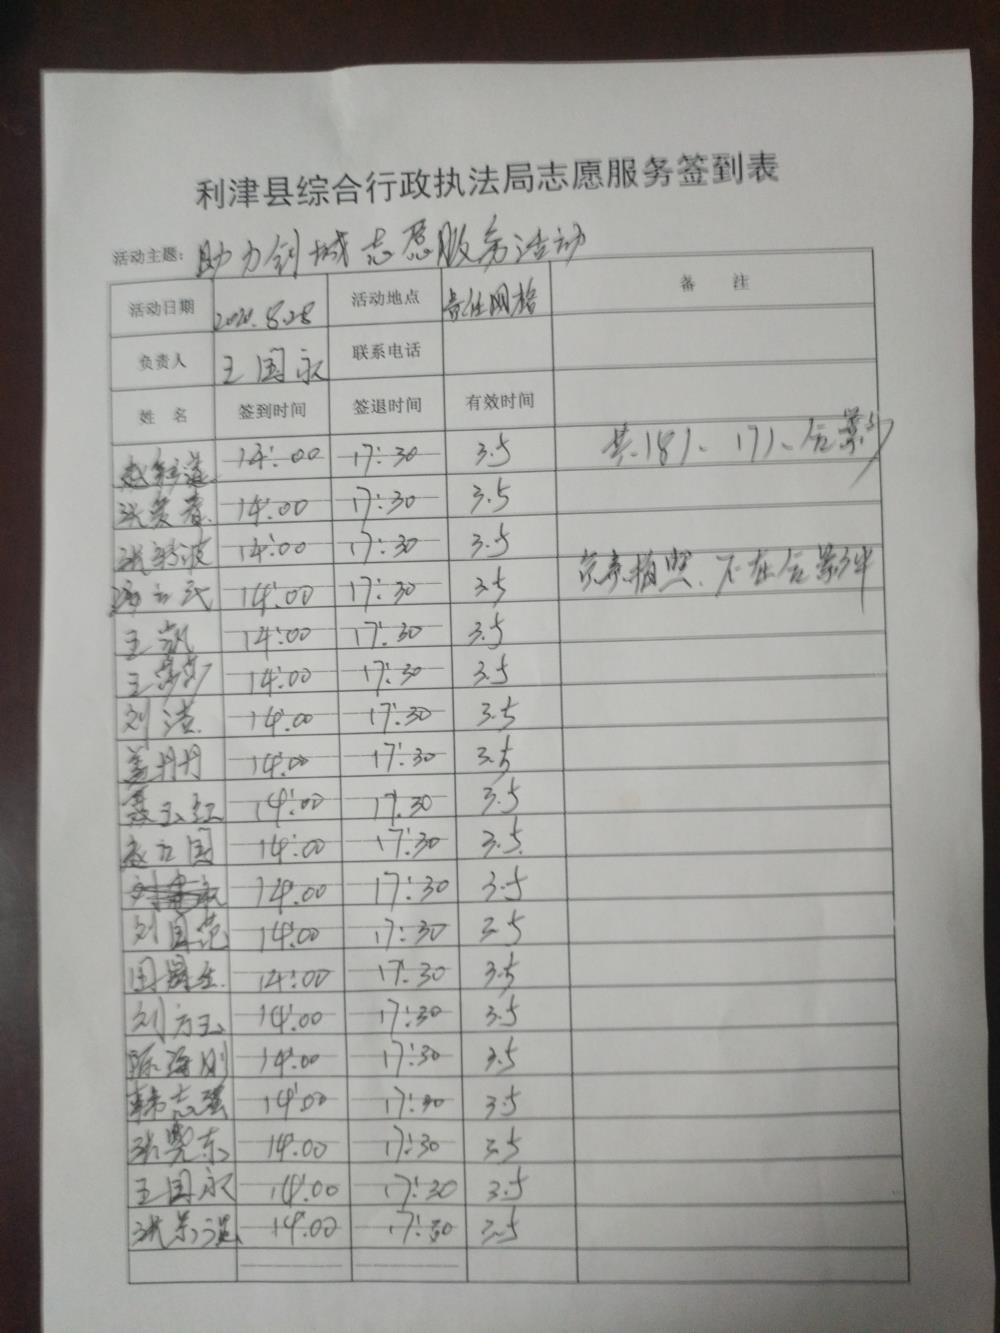 利津县综合行政执法局志愿服务签到表
活动主题：助力创城志愿服务活动
活动日期 2020.8.28 活动地点 责任网格 备 注
负责人 王国永 联系电话
姓 名 签到时间 签退时间 有效时间
14:00 17:30 3.5 共18人、17人合影
张 14:00 17:30 3.5
张 波 14:00 17:30 3.5
14:00 17:30 3.5 负责拍照、不在合影中
王凯 14:00 17:30 3.5
王莎莎 14:00 17:30 3.5
刘洁 14:00 17:30 3.5
盖丹丹 14:00 17:30 3.5
聂玉红 14:00 17:30 3.5
赵立国 14:00 17:30 3.5
14:00 17:30 3.5
刘国范 14:00 17:30 3.5
14:00 17:30 3.5
刘方玉 14:00 17:30 3.5
陈海刚 14:00 17:30 3.5
韩志强 14:00 17:30 3.5
张晓东 14:00 17:30 3.5
王国永 14:00 17:30 3.5
张景 14:00 17:30 3.5